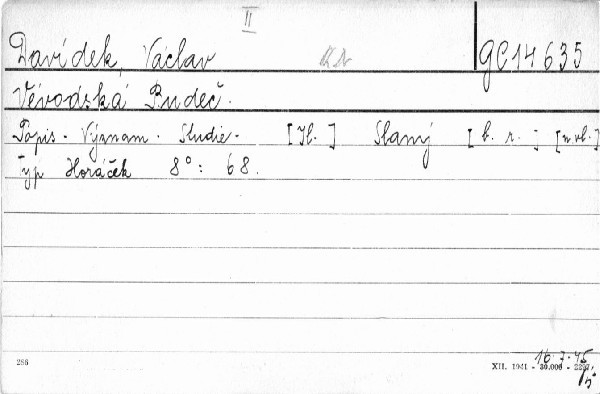 II
Davídek, Václav
GC 14 635
Vévodská Budeč.
Popis - Význam - Studie - [Il.] Slaný [b. r.] [n. vl.]
Typ Horáček 8°: 68.
286
16.7.45
XII. 1941 - 30.000 -